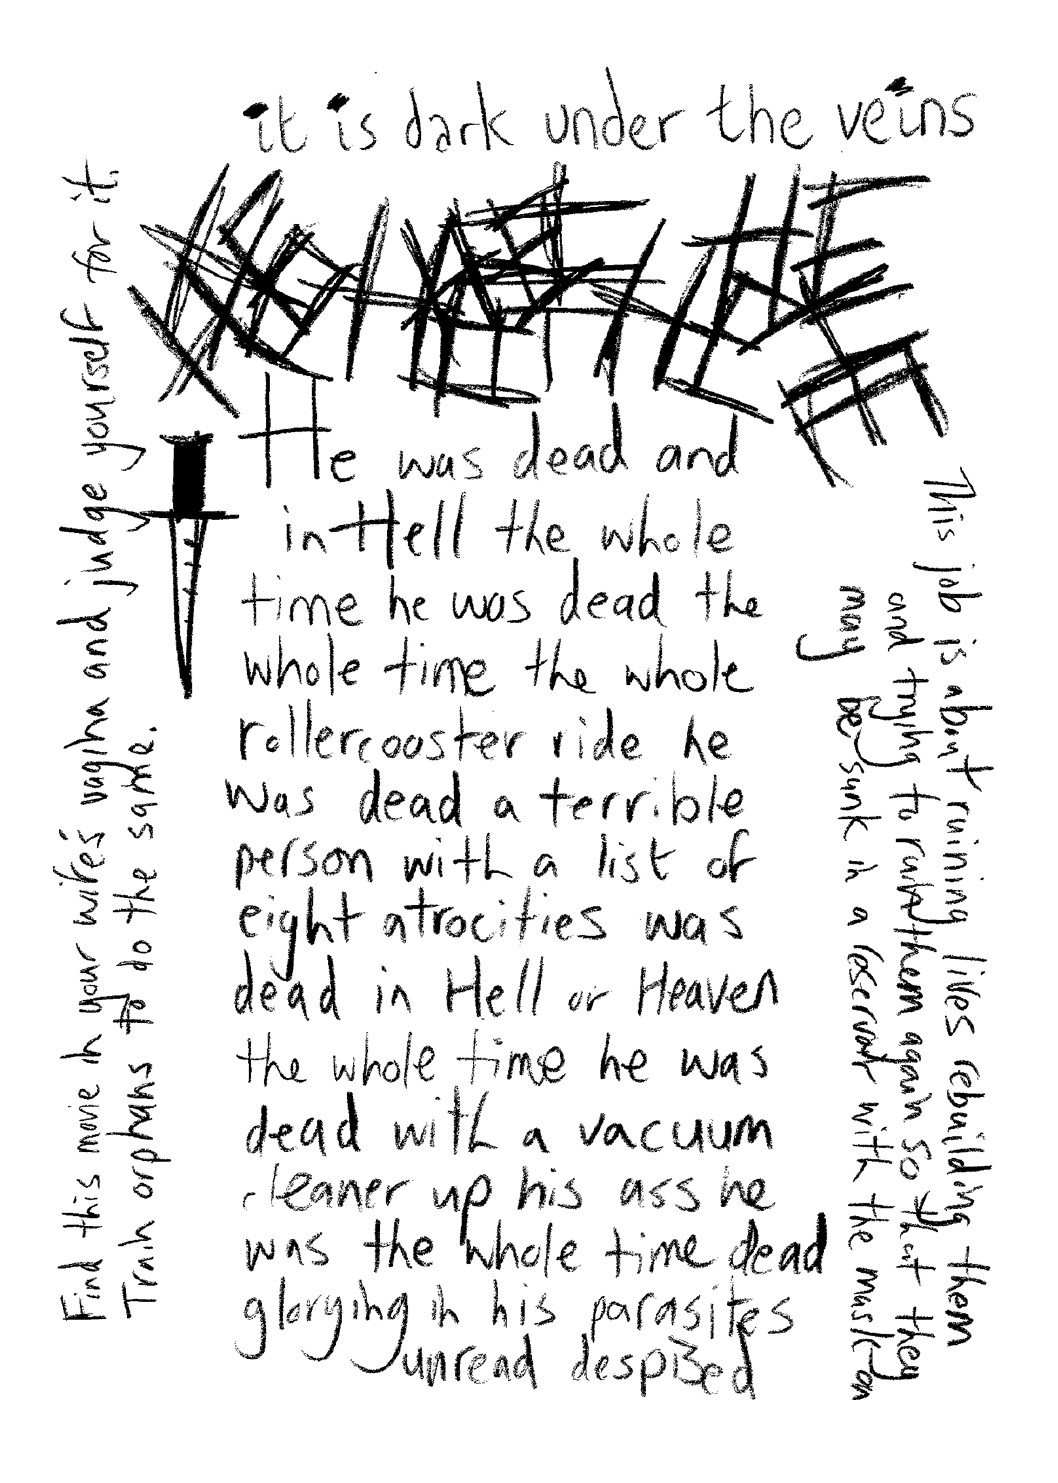 it is dark under the veins
Find this movie in your wife's vagina and judge yourself for it.
Train orphans to do the same.
He was dead and
in Hell the whole
time he was dead the
whole time the whole
rollercooster ride he
was dead a terrible
person with a list of
eight atrocities was
dead in Hell or Heaven
the whole time he was
dead with a vacuum
cleaner up his ass he
was the whole time dead
glorying in his parasites
unread despised
This job is about ruining lives rebuilding them
and trying to ruin them again so that they
may be sunk in a reservoir with the mask on